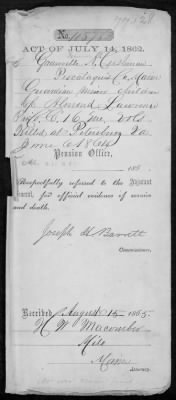 No.
ACT OF JULY 14, 1862.
Piscataquis Co. Maine
Guardian minor children
of Almond Lawrence
16 Me. Vols
Killed at Petersburg Va
June 1864
Pension Office,
186 .
Respectfully referred to the Adjutant
General, for official evidence of service
and death.
Joseph H Barrett
Commissioner.
Received August 15 1865.
W. Macomber
Milo
Maine
Attorney.